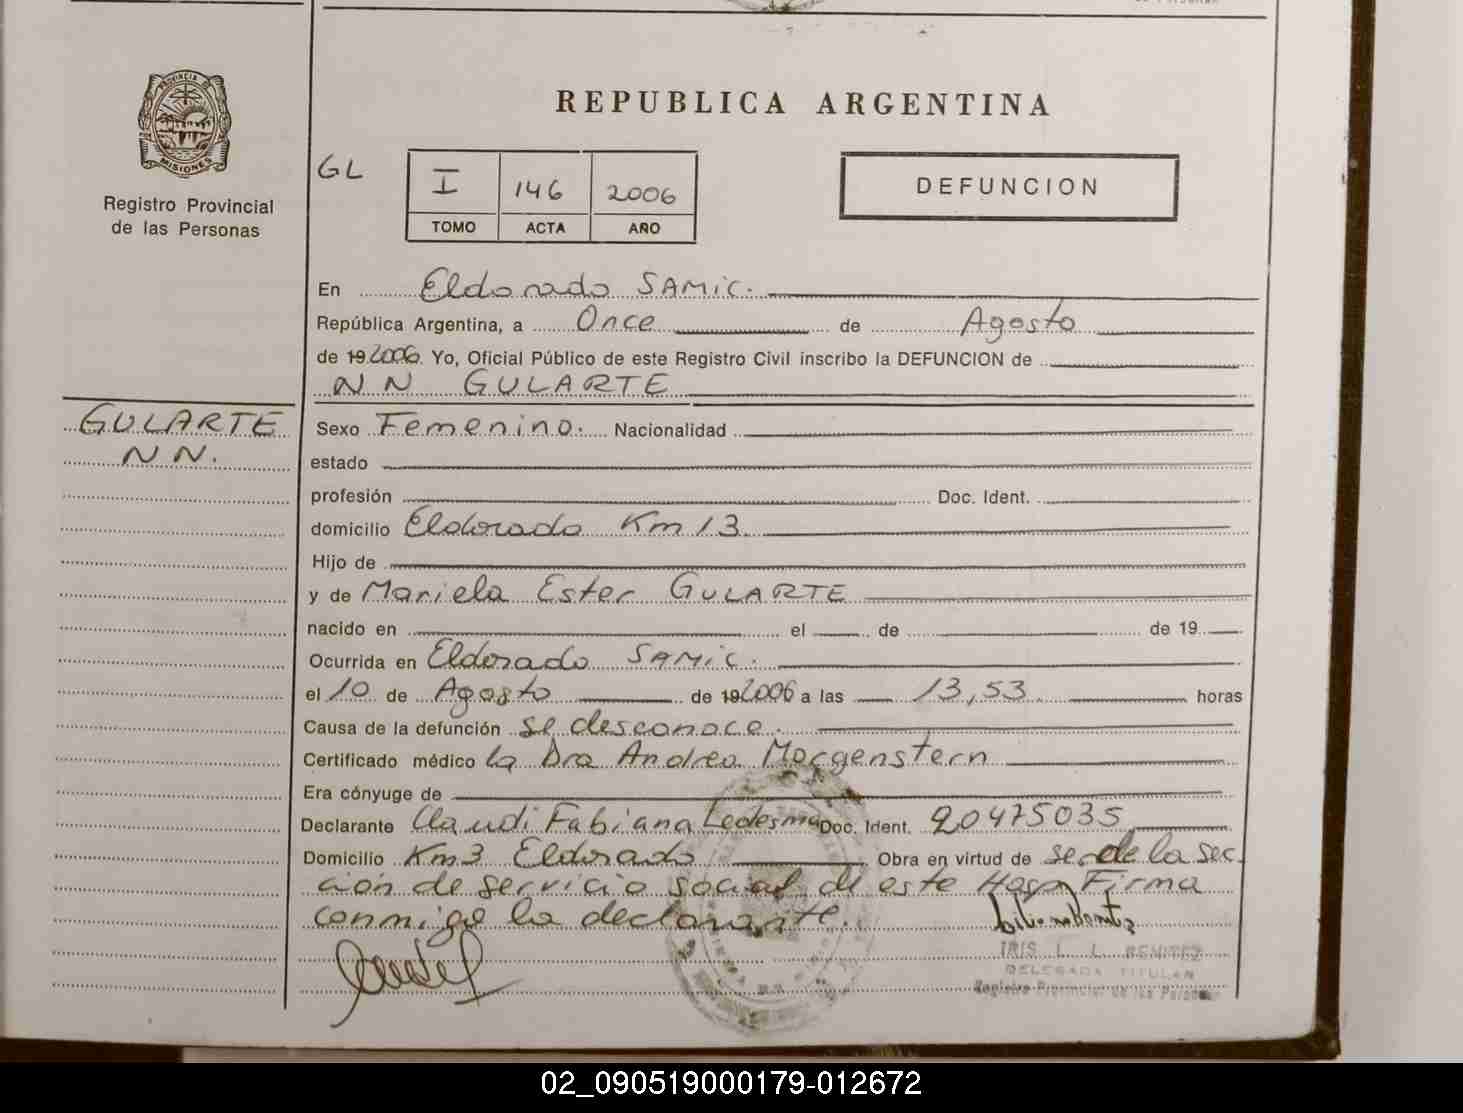 REPUBLICA ARGENTINA
PROVINCIA DE
MISIONES
Registro Provincial
de las Personas
GL
I 146 2006
TOMO ACTA AÑO
DEFUNCION
En Eldorado SAMIC.
República Argentina, a Once de Agosto
de 19 2006. Yo, Oficial Público de este Registro Civil inscribo la DEFUNCION de
NN GULARTE
GULARTE
NN.
Sexo Femenino. Nacionalidad
estado
profesión Doc. Ident.
domicilio Eldorado Km 13
Hijo de
y de Mariela Ester GULARTE
nacido en el de de 19
Ocurrida en Eldorado SAMIC.
el 10 de Agosto de 19 2006 a las 13,53 horas
Causa de la defunción se desconoce.
Certificado médico la Dra Andrea Morgenstern
Era cónyuge de
Declarante Claudi Fabiana Ledesma Doc. Ident. 20475035
Domicilio Km3 Eldorado Obra en virtud de ser de la sec
ción de servicio social de este Hosp Firma
conmigo la declarante.
IRIS L. L. BENITEZ
DELEGADA TITULAR
Registro Provincial de las Personas
02_090519000179-012672